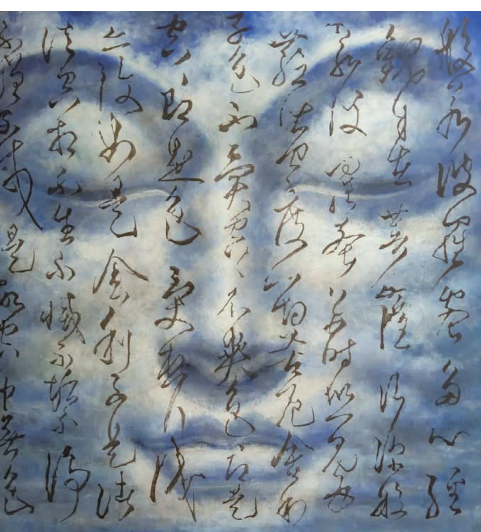 般若波羅蜜多心經
觀自在菩薩行深般
若波羅蜜多時照見五
蘊皆空度一切苦厄舍利
子色不異空空不異色色即是
空空即是色受想行識
亦復如是舍利子是諸
法空相不生不滅不垢不淨
不增不減是故空中無色